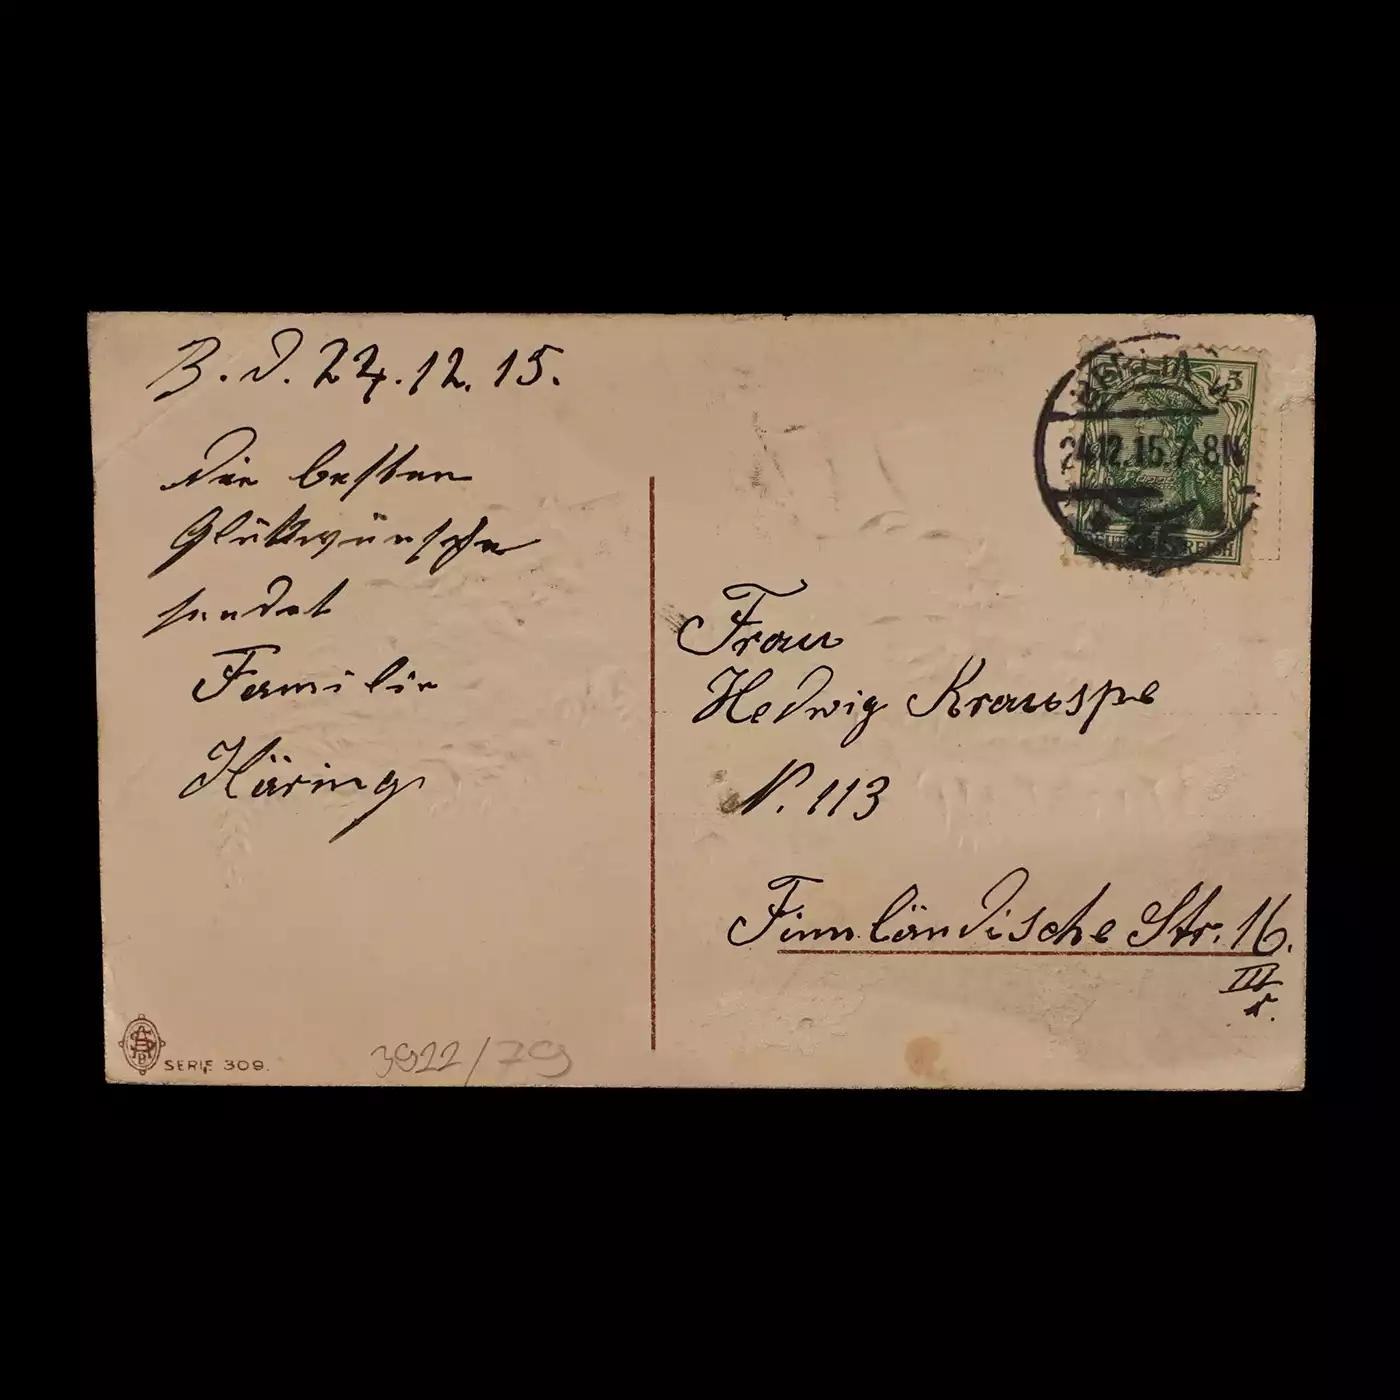 B. d. 24.12.15.
Die besten
Glückwünsche
sendet
Familie
Häring
SERIE 309.
3922/79
5
BERLIN
24.12.15.7-8N
DEUTSCHES REICH
Frau
Hedwig Krauspe
N. 113
Finnländische Str. 16.
III
r.